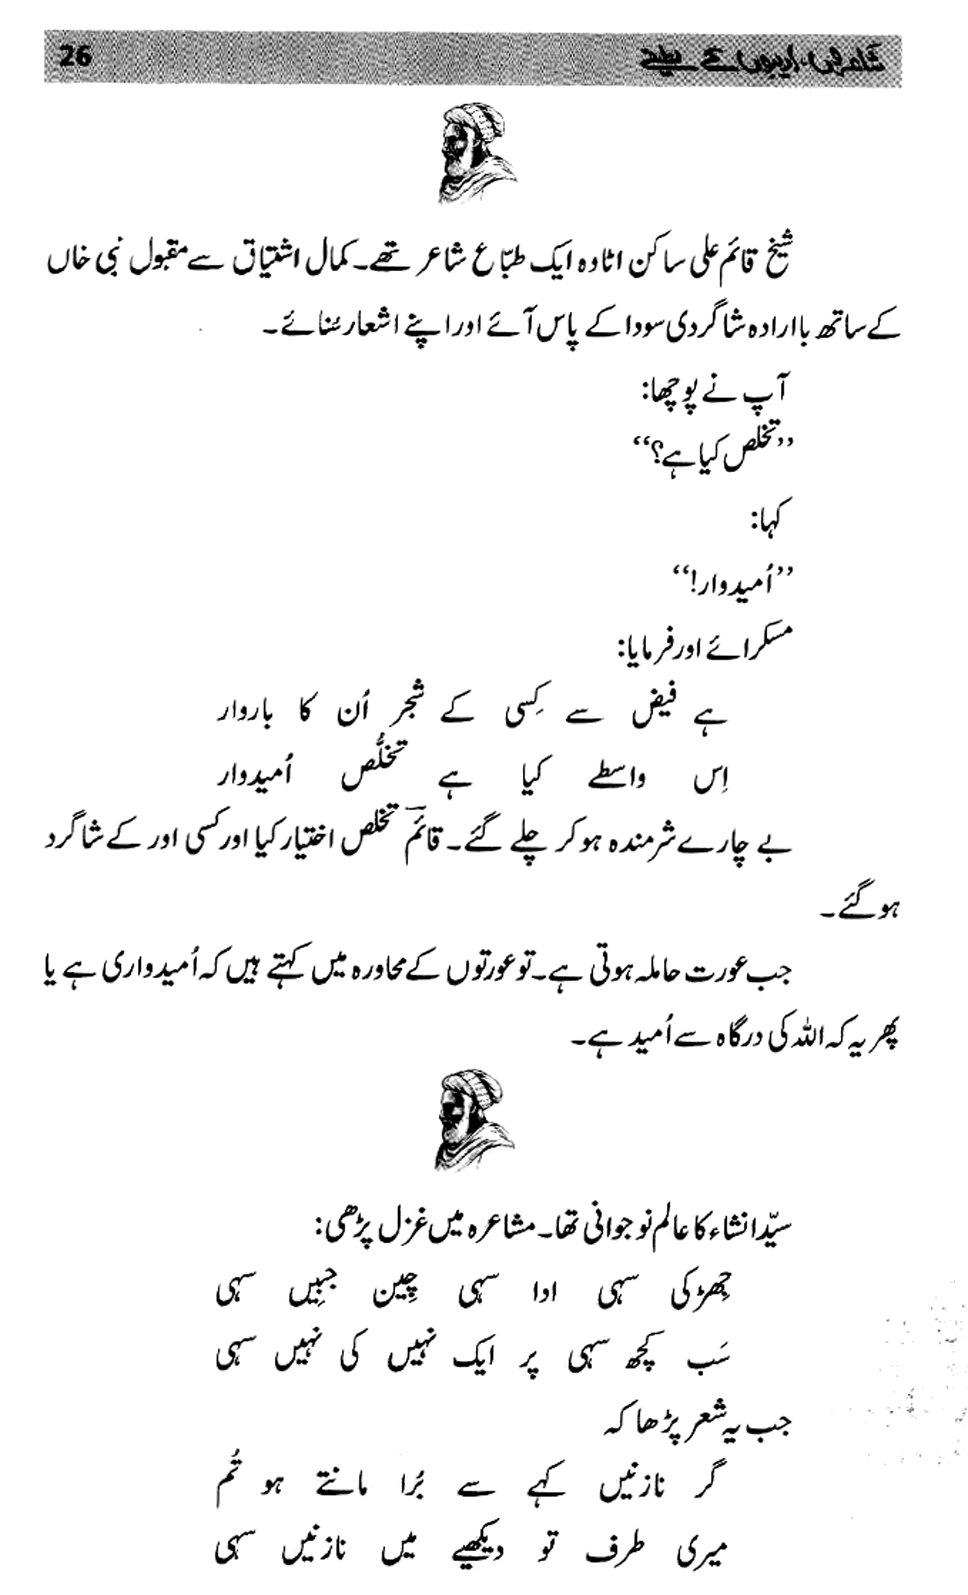 شاعروں، ادیبوں کے لطیفے 26
شیخ قائم علی ساکن اٹاوہ ایک طبّاع شاعر تھے۔ کمال اشتیاق سے مقبول نبی خاں
کے ساتھ باارادہ شاگردی سودا کے پاس آئے اور اپنے اشعار سُنائے۔
آپ نے پوچھا:
’’تخلص کیا ہے؟‘‘
کہا:
’’اُمیدوار!‘‘
مسکرائے اور فرمایا:
ہے فیض سے کِسی کے شجر اُن کا باروار
اِس واسطے کیا ہے تخلُّص اُمیدوار
بے چارے شرمندہ ہو کر چلے گئے۔ قائمؔ تخلص اختیار کیا اور کسی اور کے شاگرد
ہو گئے۔
جب عورت حاملہ ہوتی ہے۔ تو عورتوں کے محاورہ میں کہتے ہیں کہ اُمیدواری ہے یا
پھر یہ کہ اللہ کی درگاہ سے اُمید ہے۔
سیّد انشاء کا عالم نوجوانی تھا۔ مشاعرہ میں غزل پڑھی:
جِھڑکی سہی ادا سہی چِین جبِیں سہی
سَب کچھ سہی پر ایک نہیں کی نہیں سہی
جب یہ شعر پڑھا کہ
گر نازنیں کہے سے بُرا مانتے ہو تُم
میری طرف تو دیکھیے میں نازنیں سہی